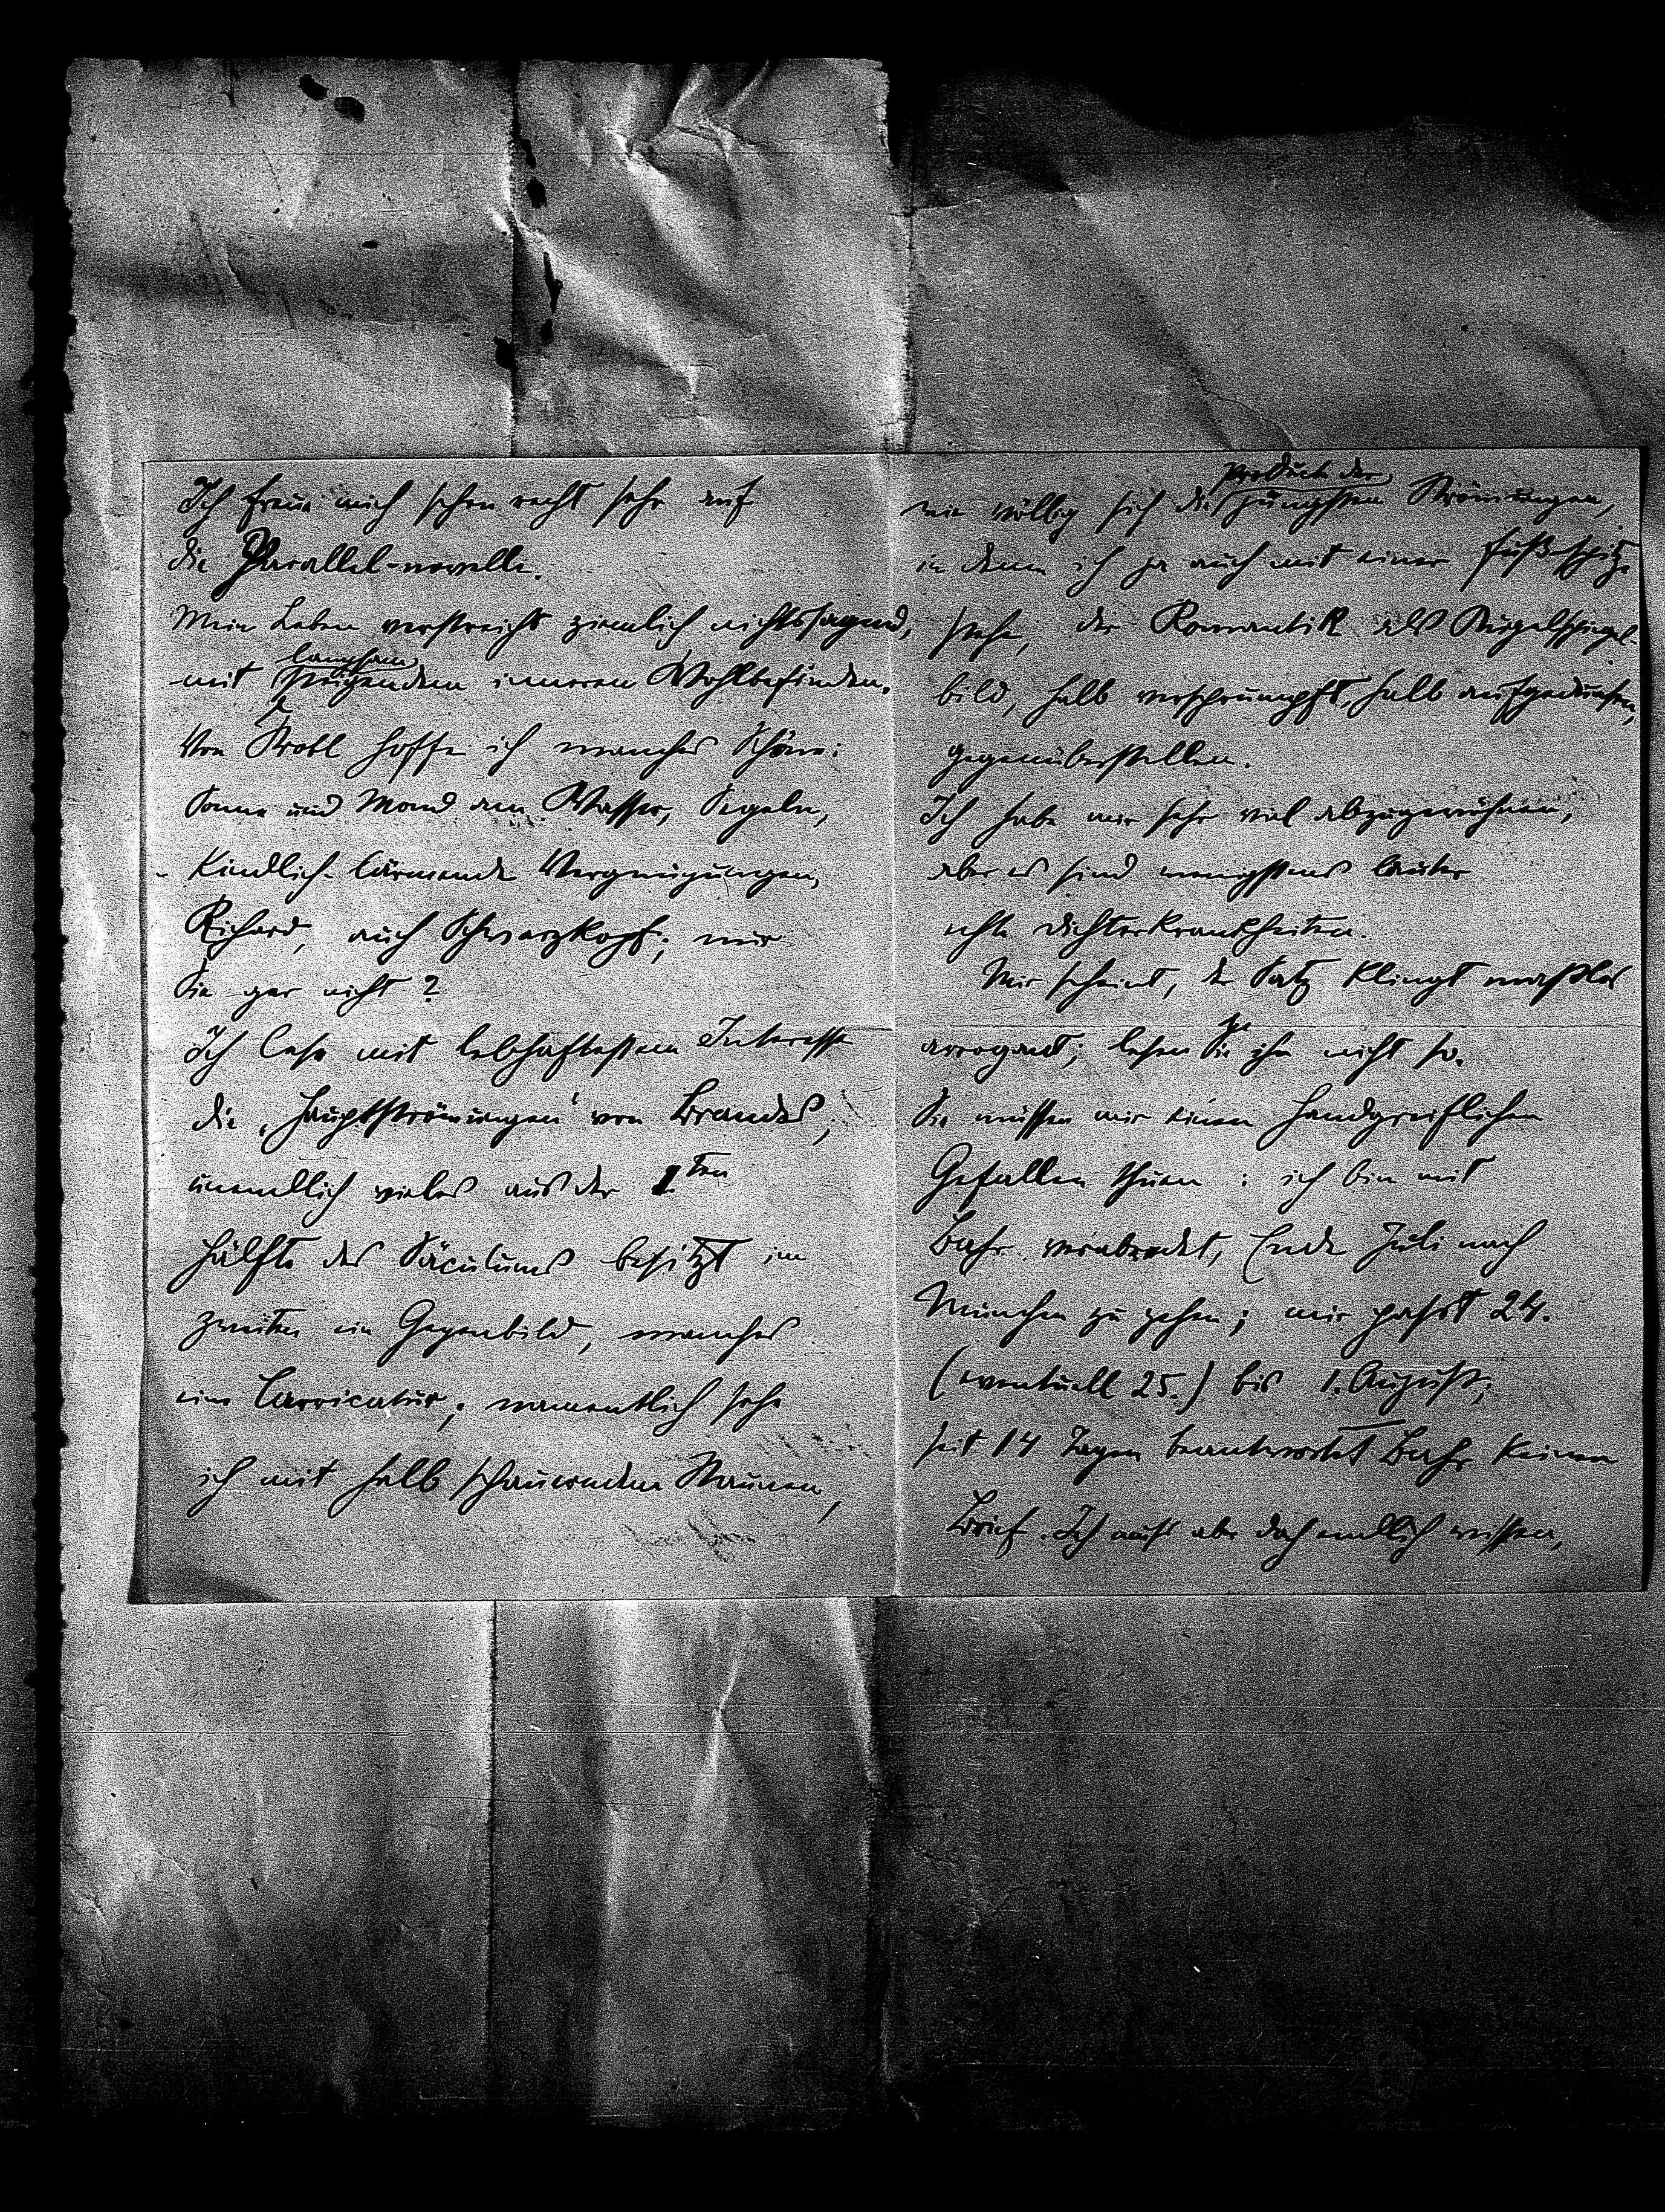 Ich freue mich schon recht sehr auf
die Parallel-novelle.
Mein Leben verstreicht ziemlich nichtssagend,
langsam
mit steigendem inneren Wohlbefinden.
Von Strobl hoffe ich manches Schöne:
Sonne und Mond am Wasser, Segeln,
Kindlich-lärmende Vergnügungen,
Richard, auch Schwarzkopf; nur
Sie gar nicht?
Ich lese mit lebhaftestem Interesse
die „Hauptströmungen‘ von Brandes;
unendlich vieles aus der 1.ten
Hälfte des Säculums besitzt im
zweiten ein Gegenbild, manches
eine Carricatur; namentlich sehe
ich mit halb schauerndem Staunen,
product der
wie völlig sich die jüngsten Strömungen,
in denen ich ja auch mit einer Fußspitze
stehe, der Romantik als Kugelspiegel-
bild, halb verschrumpft, halb aufgedunsen,
gegenüberstellen.
Ich habe mir sehr viel abzugewöhnen,
aber es sind wenigstens lauter
echte Dichterkrankheiten.
Mir scheint, der Satz klingt maßlos
arrogant; lesen Sie ihn nicht so.
Sie müssen mir einen handgreiflichen
Gefallen thuen: ich bin mit
Bahr verabredet, Ende Juli nach
München zu gehen; mir passt 24.
(eventuell 25.) bis 1. August;
seit 14 Tagen beantwortet Bahr keinen
Brief. Ich muß aber doch endlich wissen,